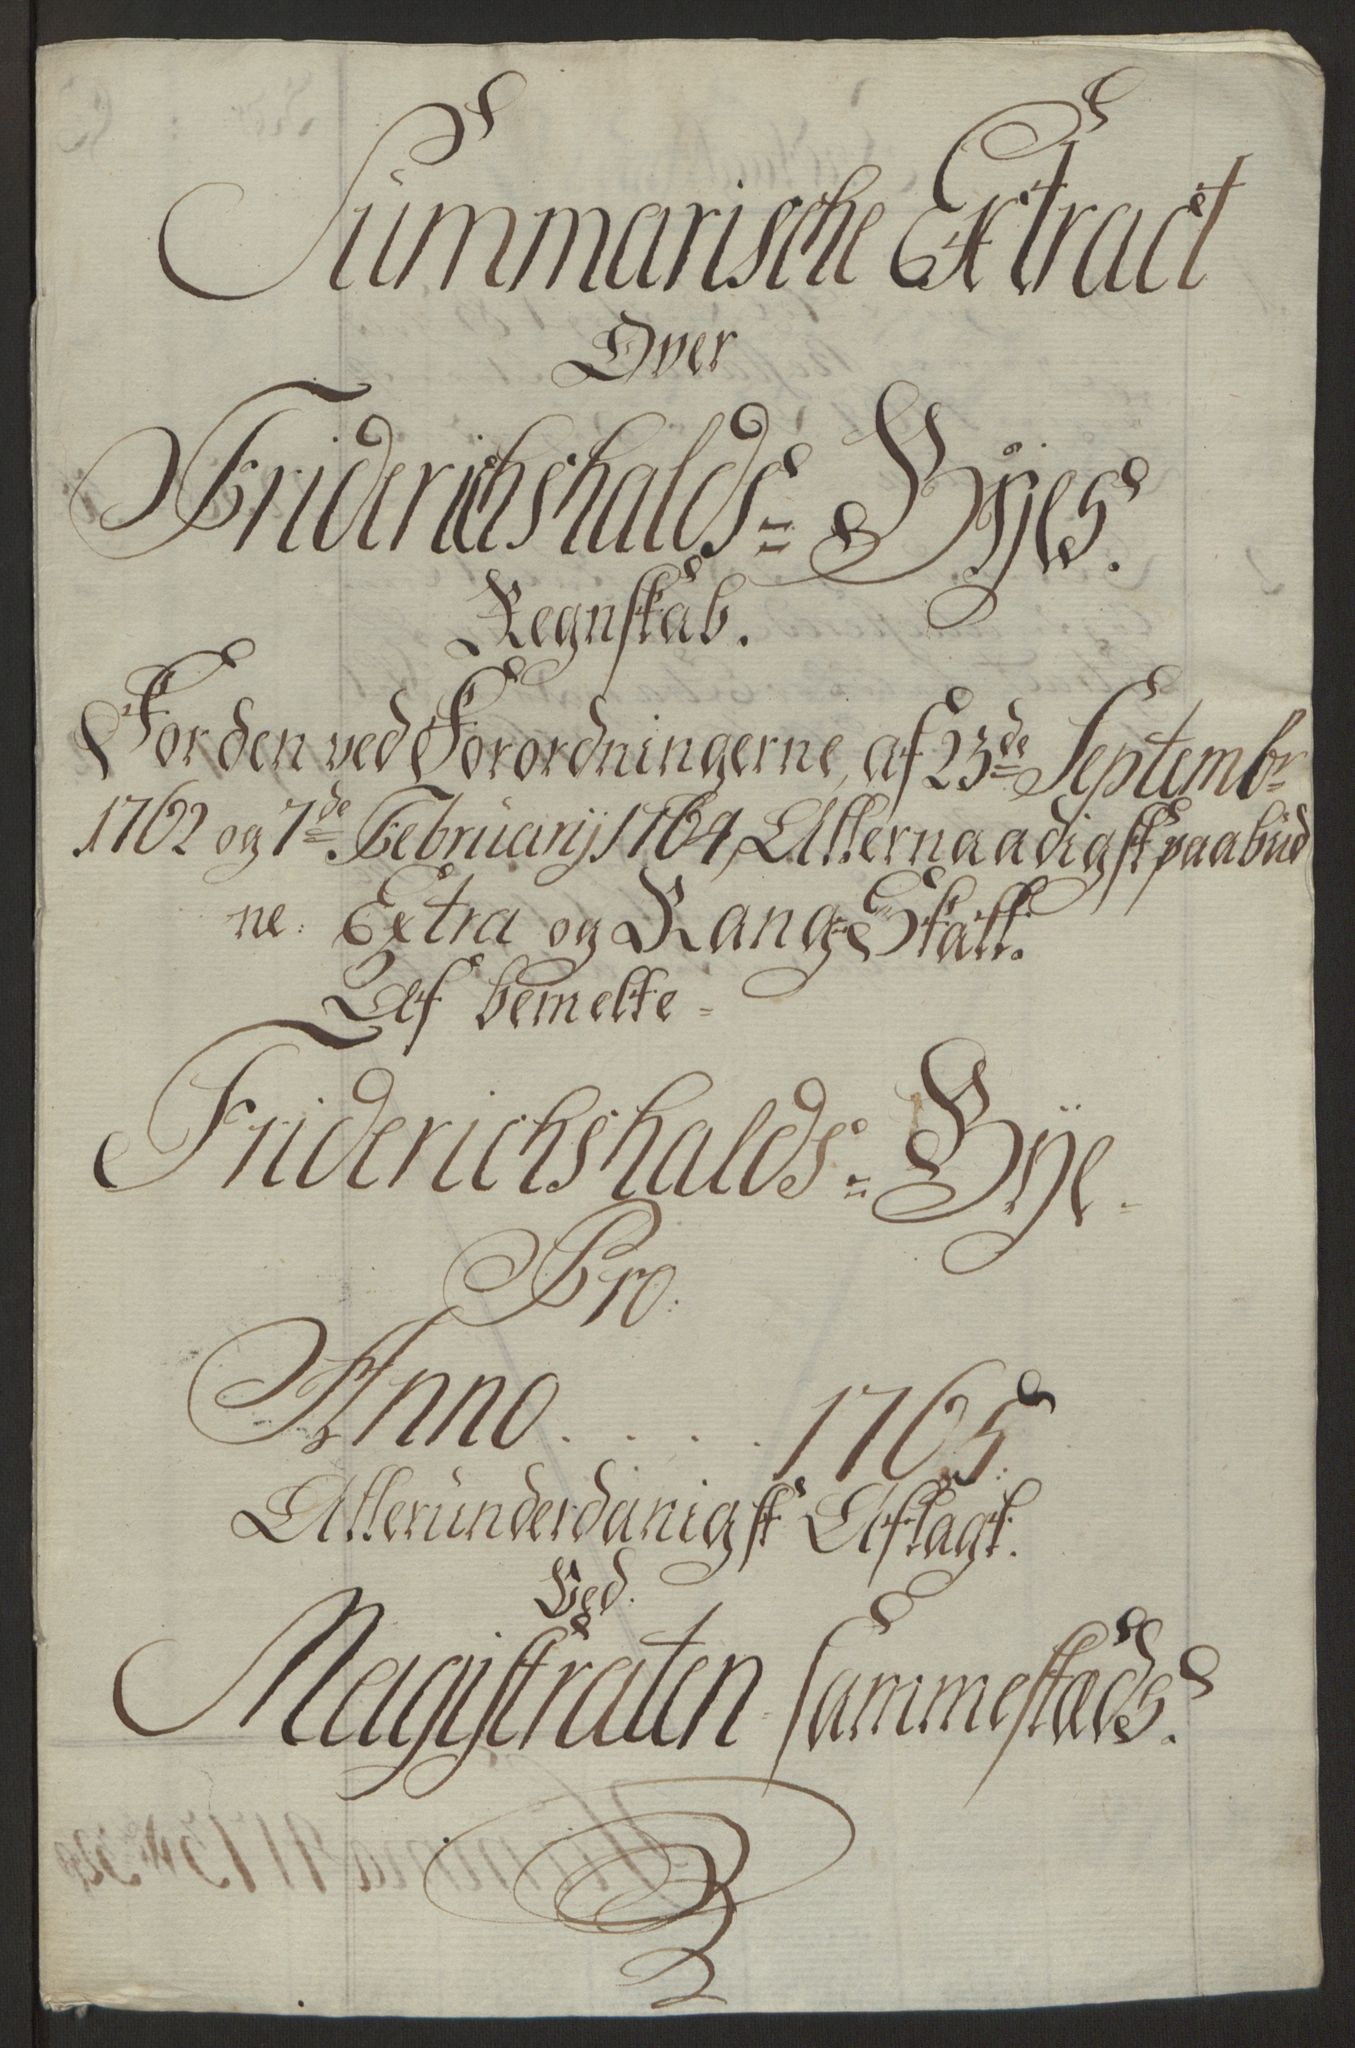 Summarische Extract
Over
Friderichshalds= Byes.
Regnskab.
For den ved Forordningerne, af 23de Septembr
1762 og 7de Februarij 1764, Allernaadigst paabud
ne: Extra og Rang=Skatt.
Af bemelte=
Friderichshalds= Bÿe.
Pro.
Anno . . . . 1765.
Allerunderdanigst Aflagt.
Ved.
Magistraten sammestæds.